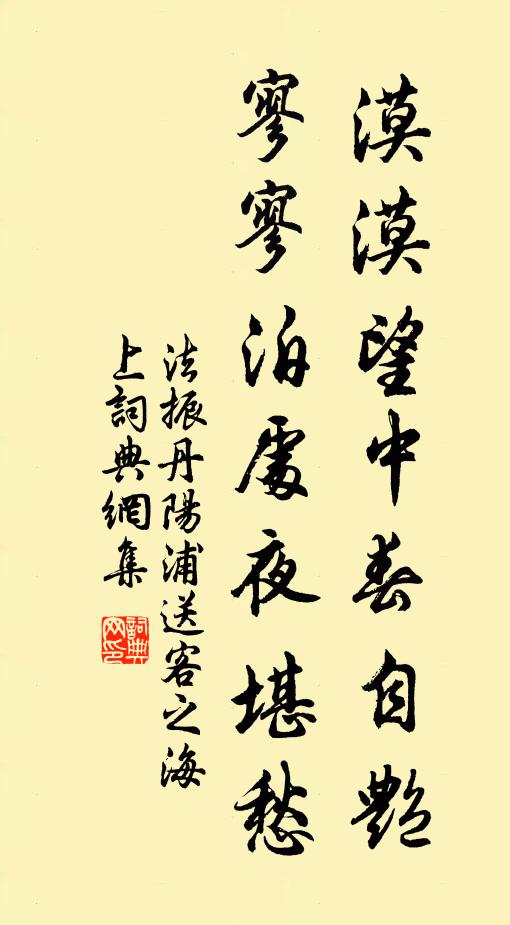 漠漠望中春自艷
寥寥泊處夜堪愁
法振丹陽浦送客之海
上詞典網集
詞典網印